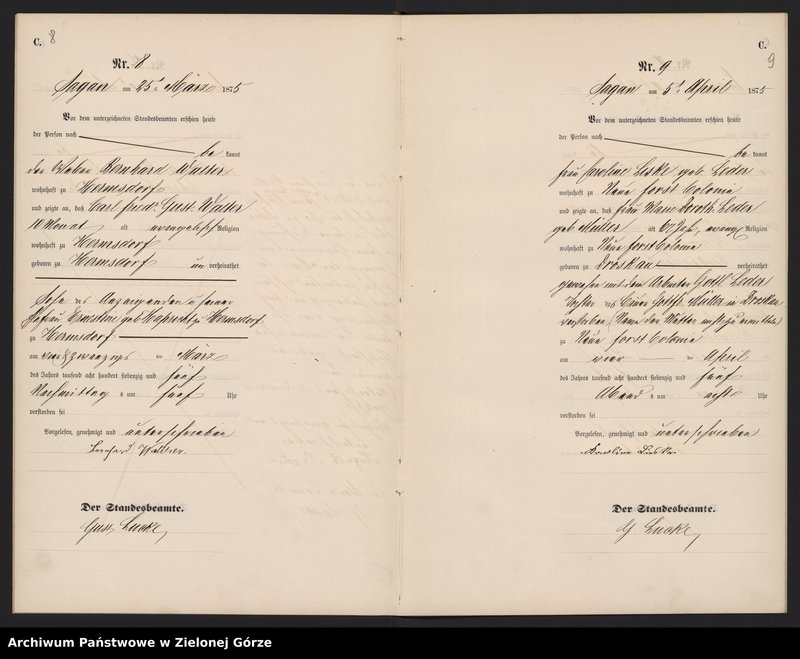 C. 8
Nr. 8
Sagan am 25t März 1875
Vor dem unterzeichneten Standesbeamten erschien heute
der Person nach
be kannt
der Bernhard Walter
wohnhaft zu Hermsdorf
und zeigte an, daß Carl Friedr. Gust. Walter
10 Monat alt evangelisch Religion
wohnhaft zu Hermsdorf
geboren zu Hermsdorf un verheirathet
Sohn des Anzeigenden u seiner
Ehefrau Ernstine geb. zu Hermsdorf
zu Hermsdorf
am vier & zwanzigs ten März
des Jahres tausend acht hundert siebenzig und fünf
Nachmittag s um fünf Uhr
verstorben sei
Vorgelesen, genehmigt und unterschrieben
Bernhard Walther
Der Standesbeamte.
Gust. Lucke
C. 9
Nr. 9
Sagan am 5t April 1875
Vor dem unterzeichneten Standesbeamten erschien heute
der Person nach
be kannt
Frau Caroline Liske geb. Leder
wohnhaft zu Neue Forst Colonie
und zeigte an, daß Frau Doroth. Leder
geb Müller alt 60 Jahr, evang. Religion
wohnhaft zu Neue Forst Colonie
geboren zu Droskau verheirathet
gewesen mit dem Arbeiter Gottl. Leder
Tochter des Gottfr. Müller in Droskau
verstorben (Name der Mutter)
zu Neue Forst Colonie
am vier ten April
des Jahres tausend acht hundert siebenzig und fünf
Abend s um acht Uhr
verstorben sei
Vorgelesen, genehmigt und unterschrieben
Karoline
Der Standesbeamte.
G. Lucke
Archiwum Państwowe w Zielonej Górze